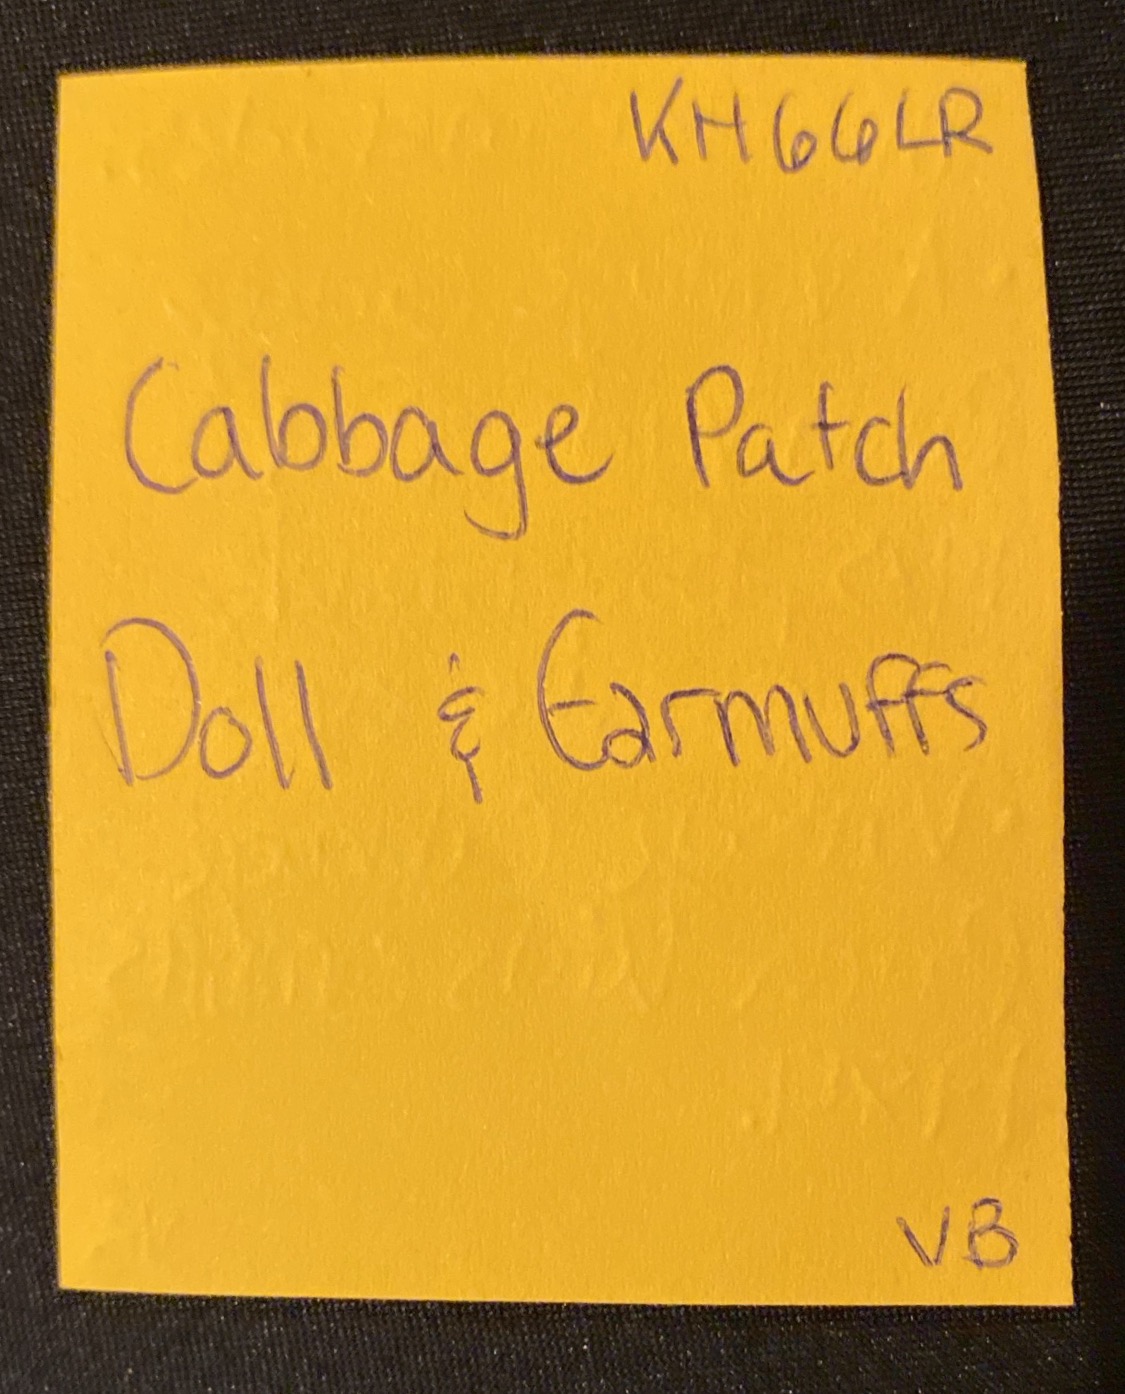 KH66LR
Cabbage Patch
Doll & Earmuffs
VB